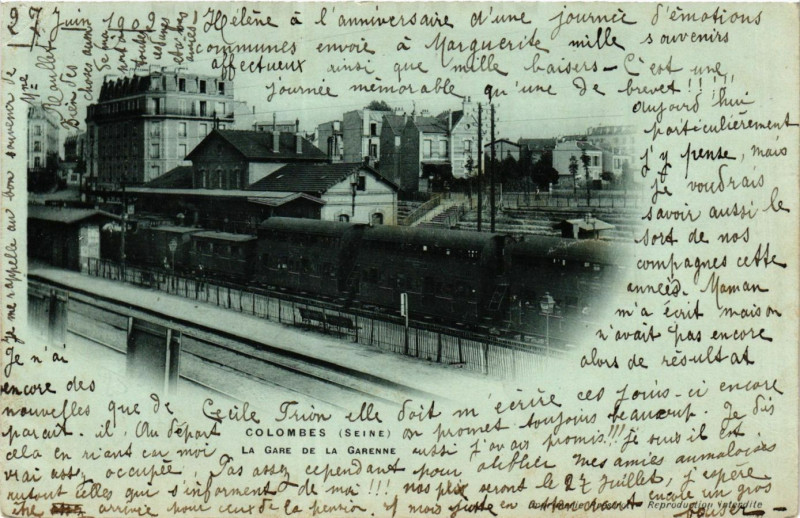 27 Juin 1902 Hélène à l'anniversaire d'une journée d'émotions
communes envoie à Marguerite mille souvenirs
affectueux ainsi que mille baisers - C'est une
journée mémorable qu'une de brevet!!!,
aujourd'hui
particulièrement
j'y pense, mais
je voudrais
savoir aussi le
sort de nos
compagnes cette
année. Maman
m'a écrit maison
n'avait pas encore
alors de résultat
Je n'ai
encore des
nouvelles que de Cécile Trion elle doit m'écrire ces jours-ci encore
parait-il. Au départ on promet toujours beaucoup. Je dis
cela en riant car moi aussi j'avais promis!!! je suis il est
vrai assez occupée. Pas assez cependant pour oublier mes amies
autant celles qui s'informent de moi!!! nos prix seront le 27 juillet, j'espère
être arrivée pour ceux de la pension. 1 mois juste en approchant encore un gros
COLOMBES (SEINE)
LA GARE DE LA GARENNE
Reproduction interdite
Je me rappelle au bon souvenir de
Mme